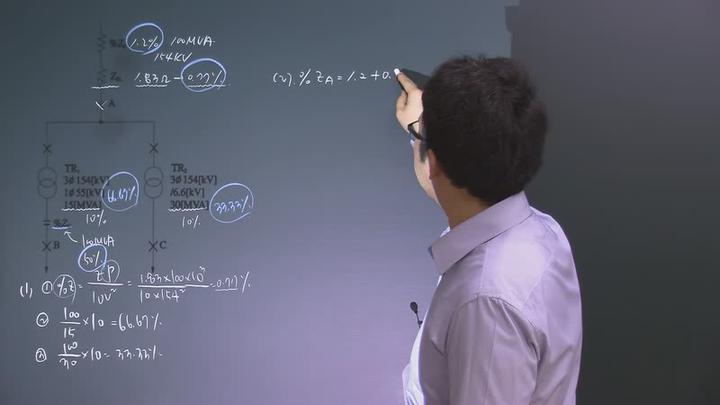 %Z 1.2% 100MVA
154KV
Z 1.83Ω - 0.77%
A
(2). % ZA = 1.2 + 0.
TR1
3Φ 154[kV]
1Φ 55[kV]
15[MVA]
66.67%
10%
TR2
3Φ 154[kV]
/6.6[kV]
30[MVA]
33.33%
10%
%Z
100MVA
B 50% C
(1) ① %Z = ZP / 10V² = 1.83×100×10³ / 10×154² = 0.77%.
② 100/15 ×10 = 66.67%.
③ 100/30 ×10 = 33.33%.